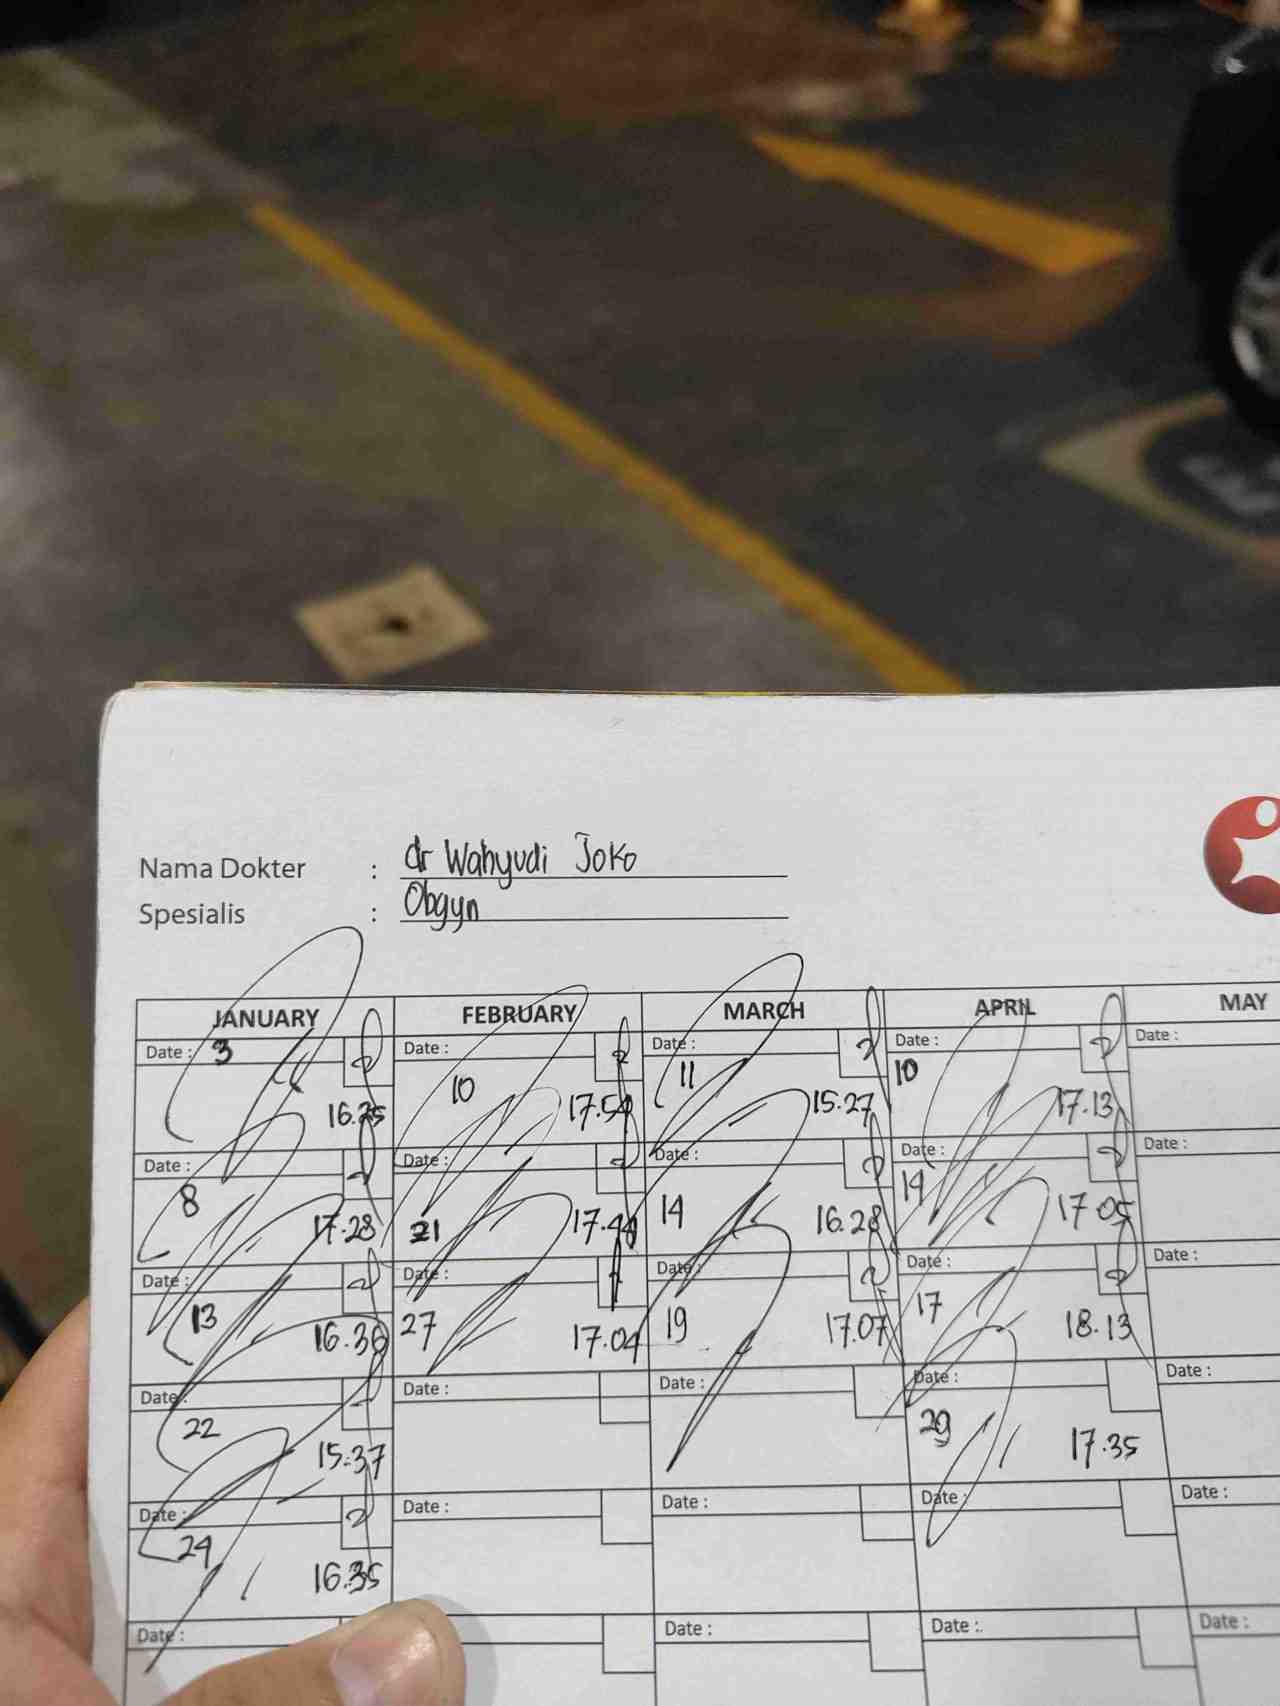 Nama Dokter : dr Wahyudi Joko
Spesialis : Obgyn
JANUARY FEBRUARY MARCH APRIL MAY
Date : 3 Date : Date : Date : Date :
10 11 10
16.25 17.54 15.27 17.13
Date : Date : Date : Date : Date :
8 21 14 14
17.28 17.44 16.28 17.05
Date : Date : Date : Date : Date :
13 27 19 17
16.36 17.04 17.07 18.13
Date : Date : Date : Date : Date :
22 29
15.37 17.35
Date : Date : Date : Date : Date :
24
16.35
Date : Date : Date : Date :